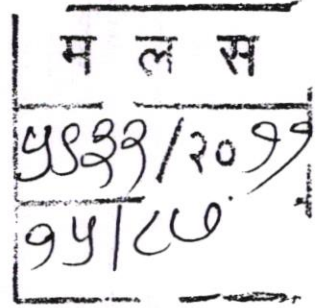 म ल स
५९३३/२०११
१५/८७